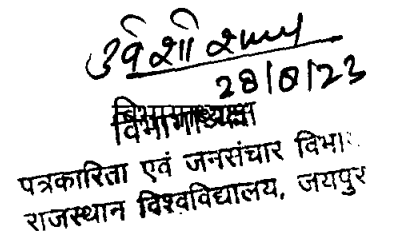 उर्वशी शर्मा
28/8/23
विभागाध्यक्ष
पत्रकारिता एवं जनसंचार विभा
राजस्थान विश्वविद्यालय, जयपुर